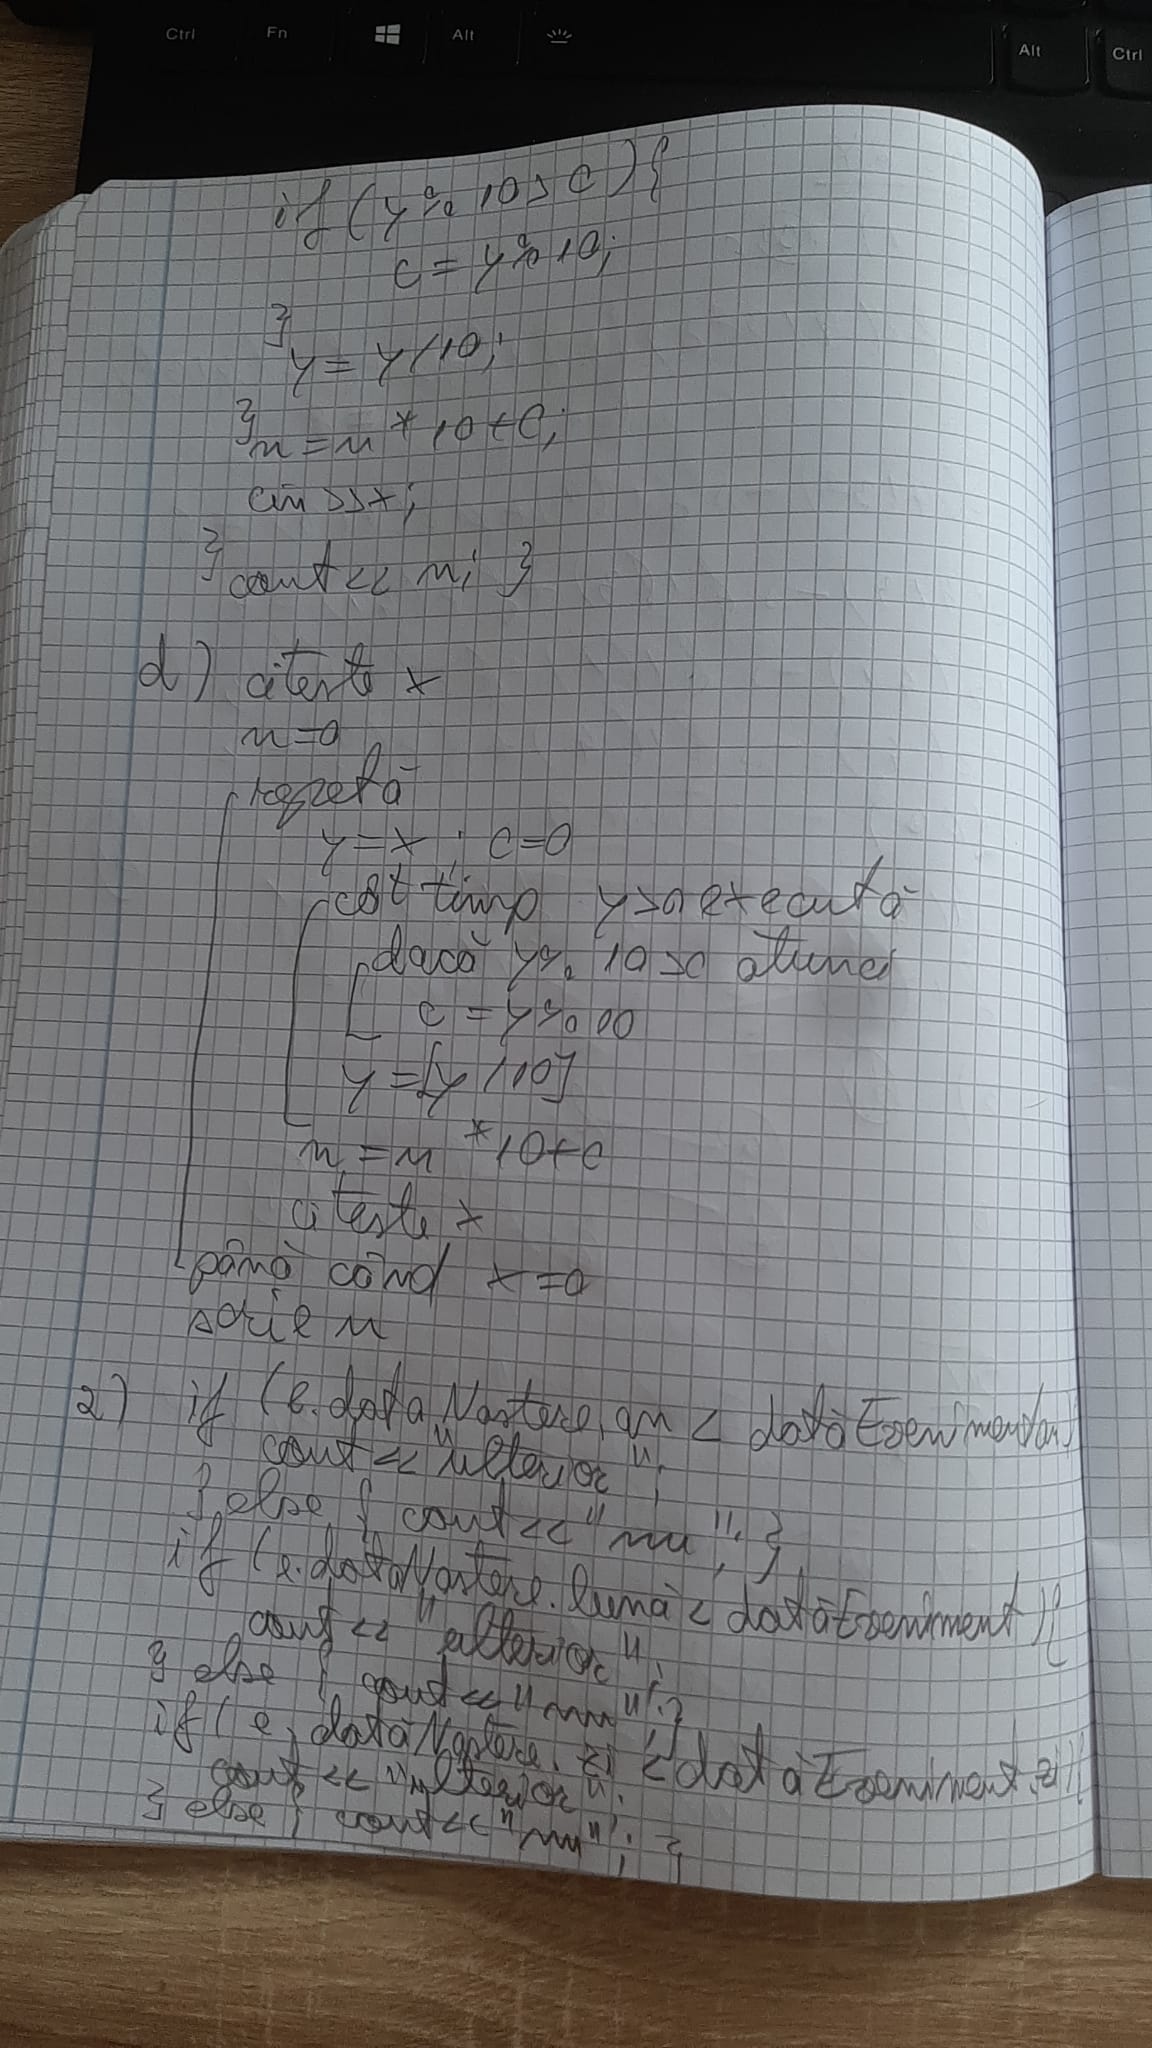 Ctrl Fn Alt Alt Ctrl
if (y%10>c){
c=y%10;
}
y=y/10;
}
n=n*10+c;
cin>>x;
}
cout<<n; }
d) citeste x
n=0
repetă
y=x; c=0
cât timp y>0 execută
dacă y%10>c atunci
c=y%10
y=[y/10]
n=n*10+c
citeste x
până când x=0
scrie n
2) if (e.dataNastere.an < datăEveniment.an)
cout<<"ulterior";
} else { cout<<"nu"; }
if (e.datăNastere.lună < datăEveniment){
cout<<"ulterior";
} else { cout<<"nu"; }
if (e.datăNastere.zi < datăEveniment.zi){
cout<<"ulterior";
} else { cout<<"nu"; }